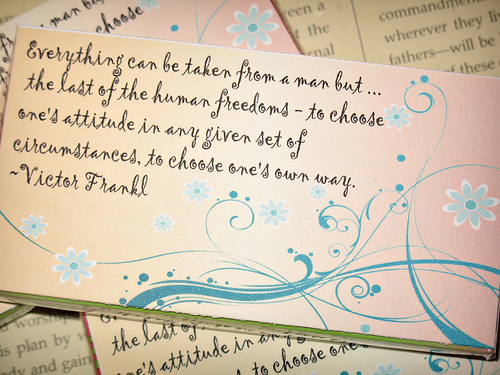 Everything can be taken from a man but ...
the last of the human freedoms - to choose
one's attitude in any given set of
circumstances, to choose one's own way.
~Victor Frankl
from a man bu
to choose
been a
t the
ernal
commandmen
wherever they
fathers—will be
of these
worship
is plan by
dy and gain
the last of
one's attitude in any
to choose one's